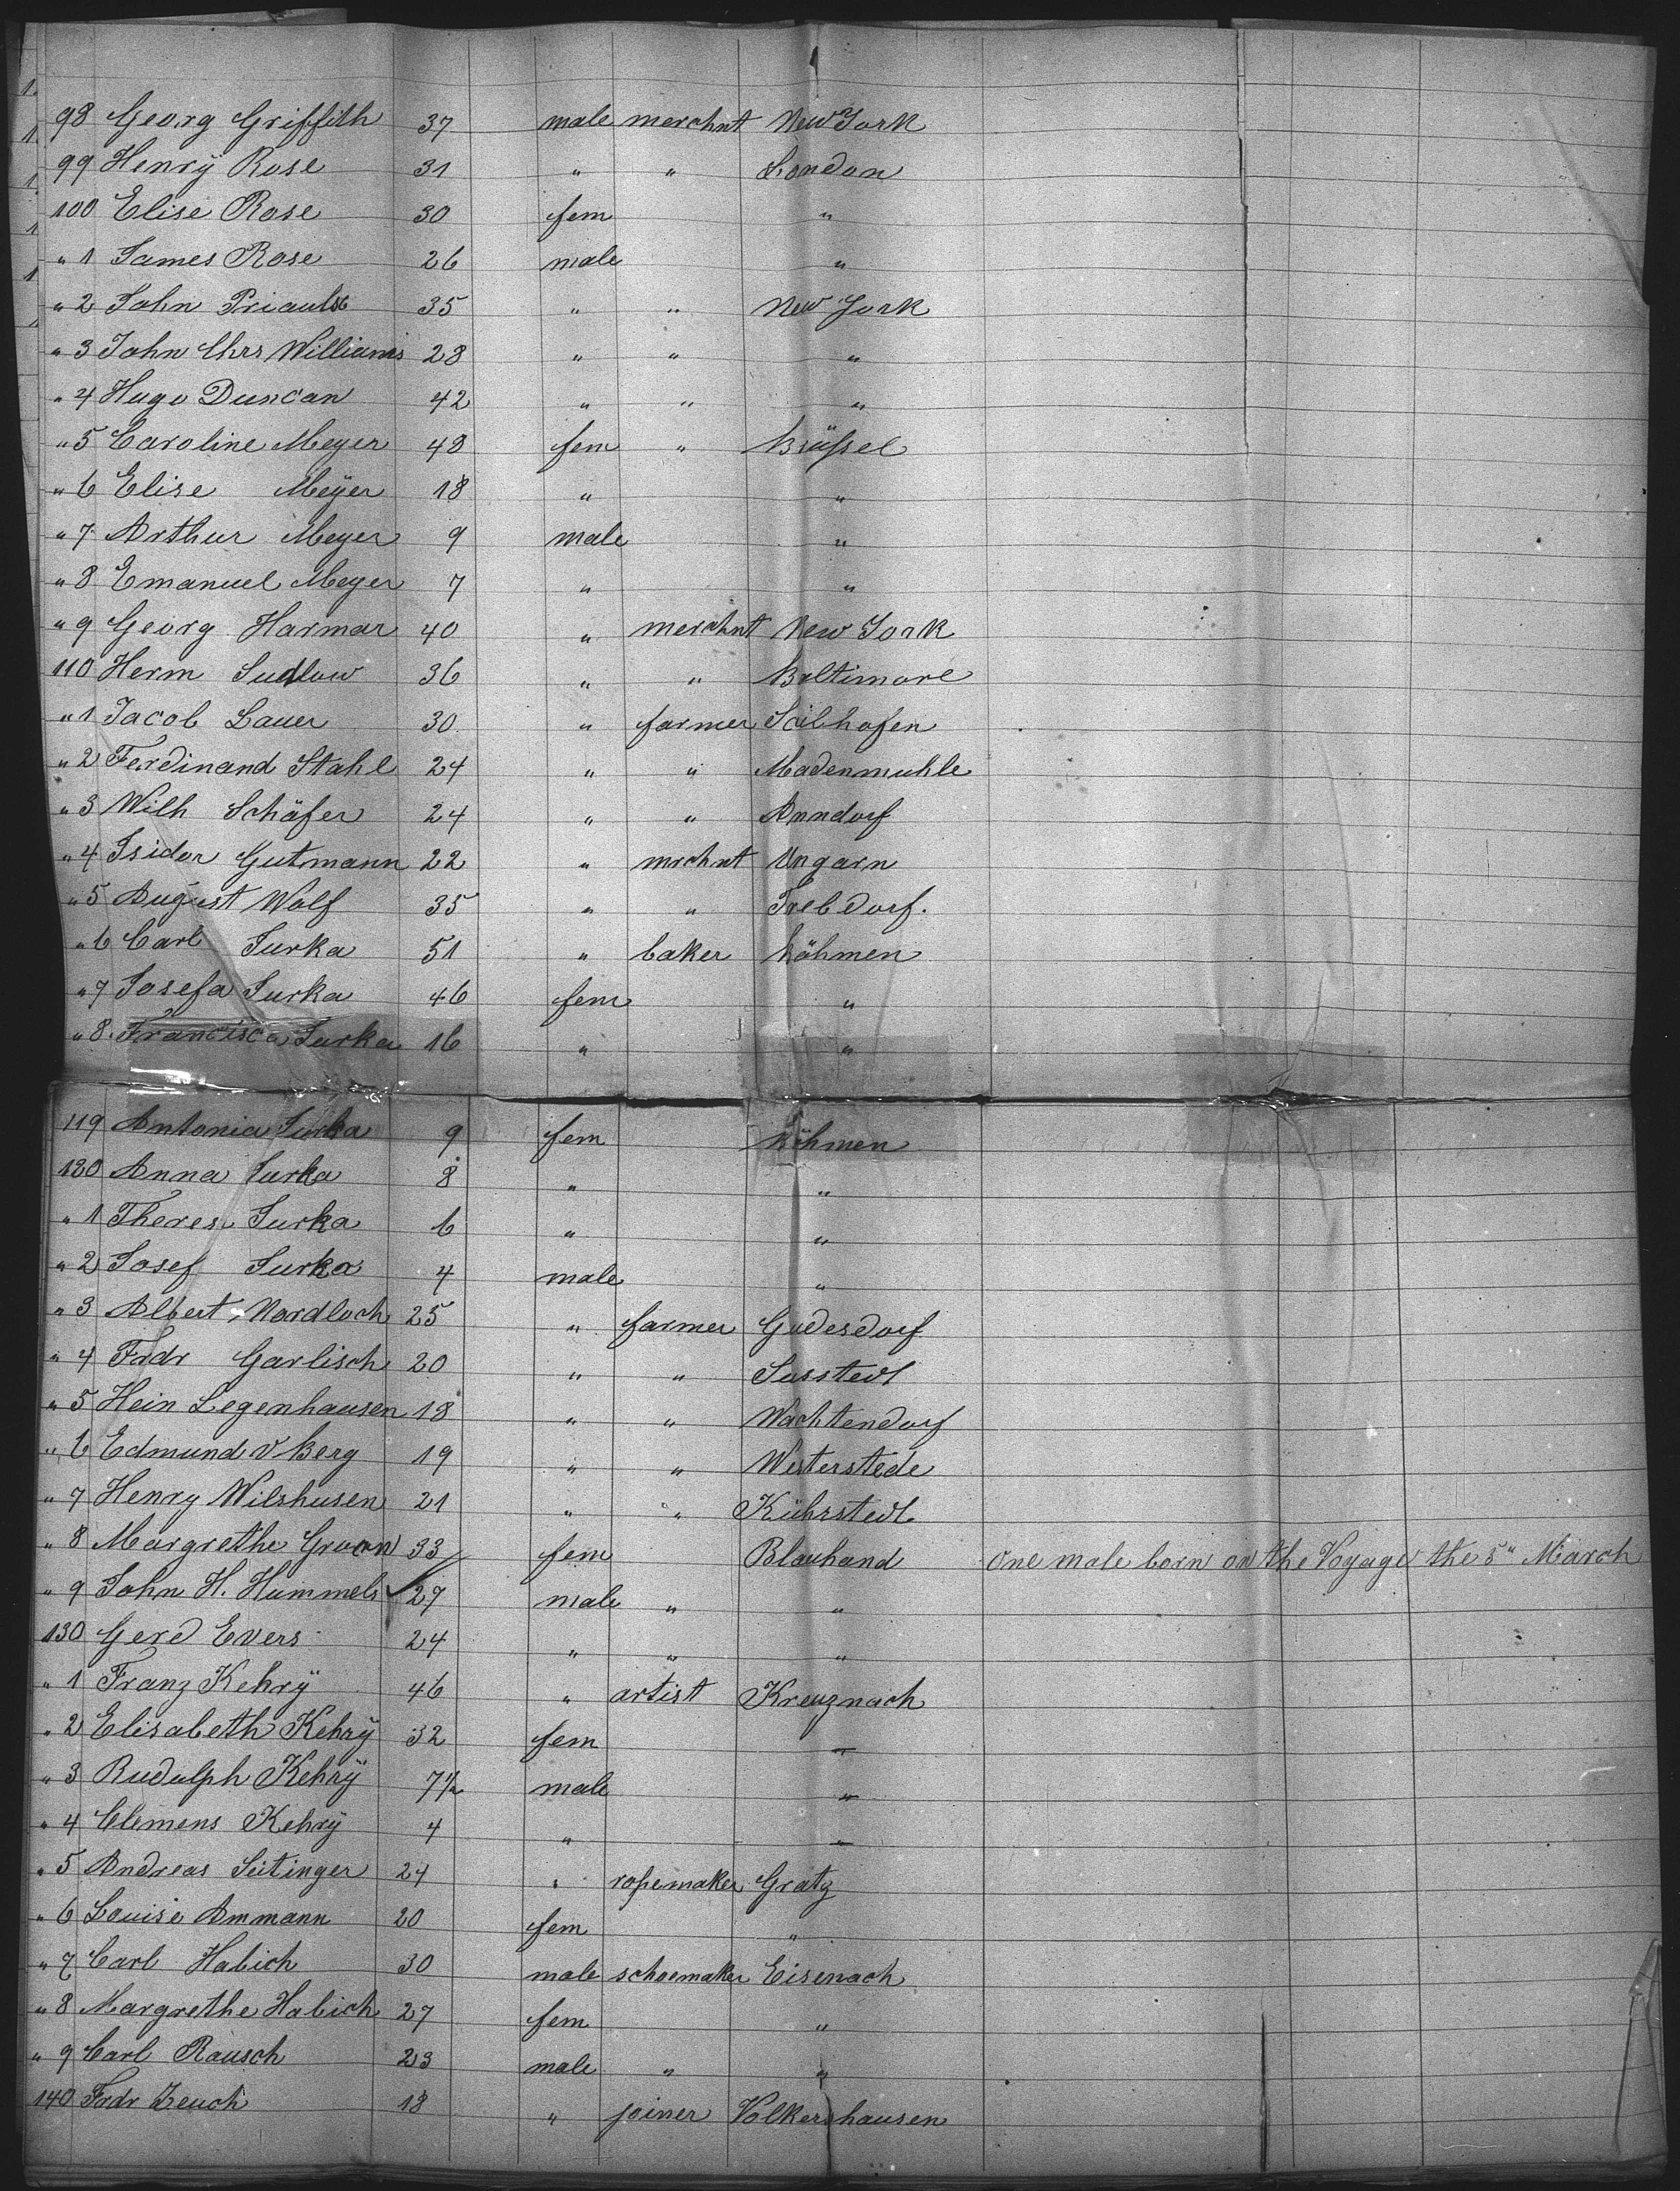 98 Georg Griffith 37 male merchnt New York
99 Henrÿ Rose 31 " " London
100 Elise Rose 30 fem "
" 1 James Rose 26 male "
" 2 John Priaulx 35 " " New York
" 3 John Chrs Williams 28 " " "
" 4 Hugo Duncan 42 " " "
" 5 Caroline Meyer 48 fem " Brüssel
" 6 Elise Meÿer 18 " "
" 7 Arthur Meyer 9 male "
" 8 Emanuel Meyer 7 " "
" 9 Georg Harmar 40 " merchnt New York
110 Herm Sudlow 36 " " Baltimore
" 1 Jacob Lauer 30 " farmer Seilhofen
" 2 Ferdinand Stahl 24 " " Madenmuhle
" 3 Wilh Schäfer 24 " " Anndorf
" 4 Isidor Gutmann 22 " mrchnt Ungarn
" 5 August Wolf 35 " " Trebdorf.
" 6 Carl Jurka 51 " baker Böhmen
" 7 Josefa Jurka 46 fem "
" 8. Francisca Jurka 16 " "
119 Antonia Jurka 9 fem Böhmen
120 Anna Jurka 8 " "
" 1 Theres Jurka 6 " "
" 2 Josef Jurka 4 male "
" 3 Albert Nordloch 25 " farmer Godesdorf
" 4 Frdr Garlisch 20 " " Susstedt
" 5 Hein Legenhausen 18 " " Wachtendorf
" 6 Edmund v Berg 19 " " Westerstede
" 7 Henry Wilshusen 21 " " Kührstedt
" 8 Margrethe 33 fem Blauhand One male born on the Voyage the 5" March
" 9 John H. Hummels 27 male " "
130 Gerd Evers 24 " " "
" 1 Franz Kehrÿ 46 " artist Kreuznach
" 2 Elisabeth Kehrÿ 32 fem "
" 3 Rudolph Kehrÿ 7½ male "
" 4 Clemens Kehrÿ 4 " "
" 5 Andreas Seitinger 24 " ropemaker Gratz
" 6 Louise Ammann 20 fem "
" 7 Carl Habich 30 male schoemaker Eisenach
" 8 Margrethe Habich 27 fem "
" 9 Carl Rausch 23 male " "
140 Frdr Zeuch 18 " joiner Volkershausen